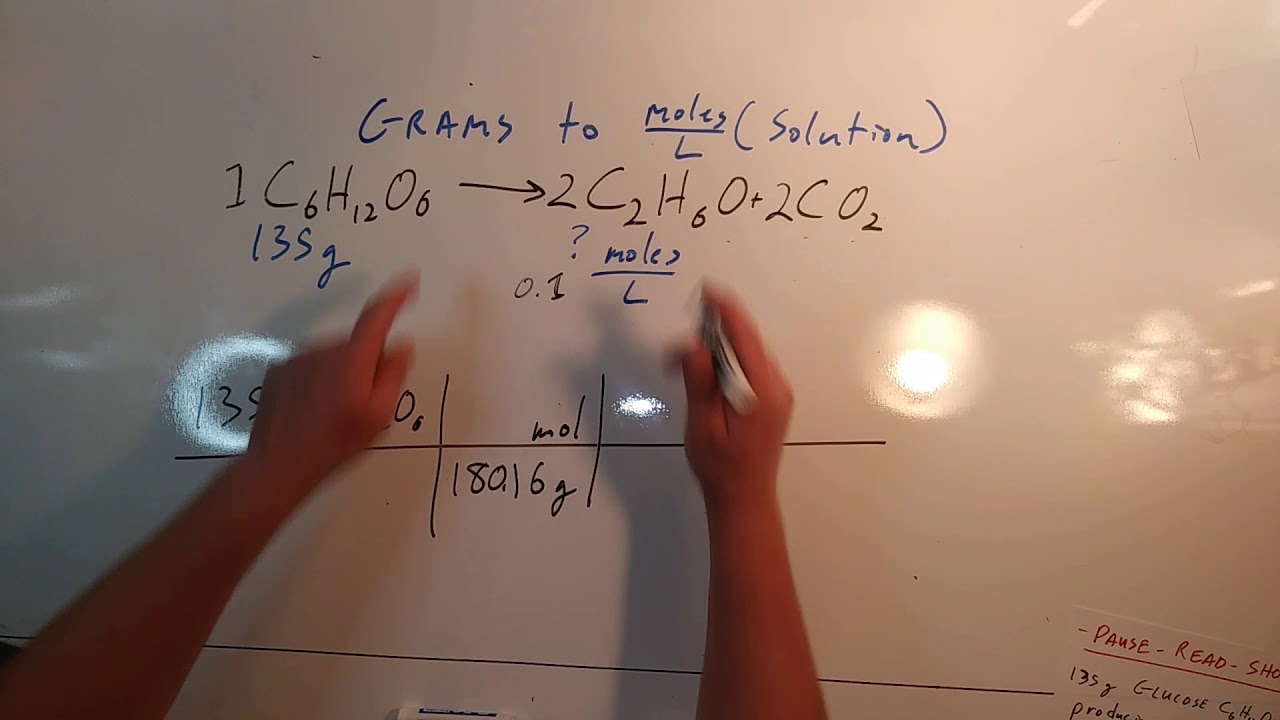 GRAMS to moles/L (Solution)
1 C6H12O6 → 2 C2H6O + 2CO2
135g ? moles/L
0.1
135 O6 | mol
180.16 g
- PAUSE - READ - SHO
135g GLUCOSE C6H
produci